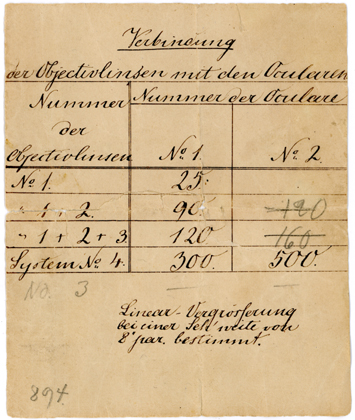 Verbindung
der Objectivlinsen mit den Ocularen
Nummer Nummer der Oculare
der
Objectivlinsen No. 1. No. 2.
No. 1. 25.
" 1 + 2. 90. 120
" 1 + 2 + 3. 120 160
System No. 4. 300. 500.
No. 3
Linear-Vergrösserung
bei einer Sehweite von
8" par. bestimmt.
894.